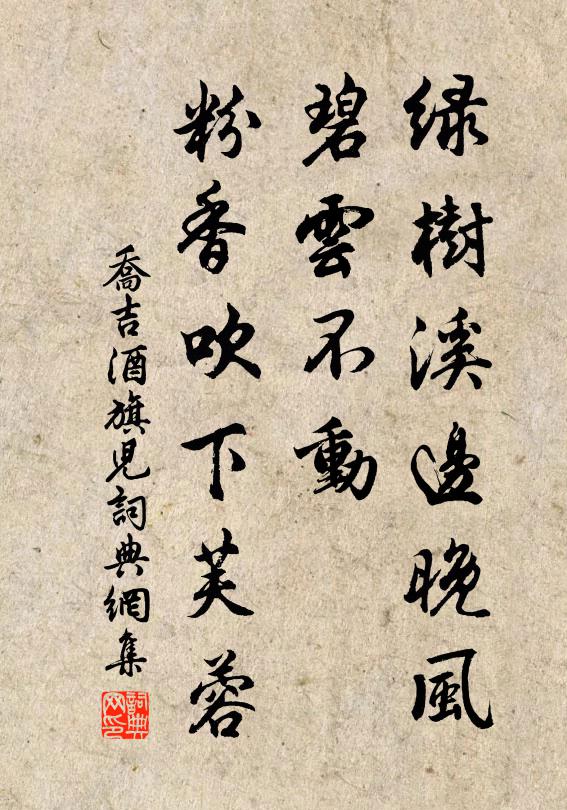 緑樹溪邊晚風
碧雲不動
粉香吹下芙蓉
喬吉酒旗兒詞典網集
詞典網印